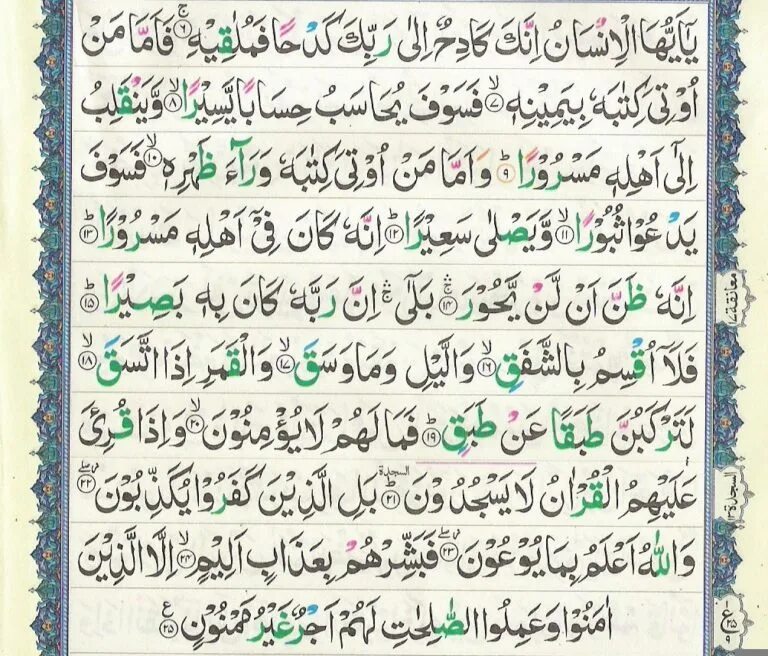 يٰۤاَيُّهَا الْاِنْسَانُ اِنَّكَ كَادِحٌ اِلٰى رَبِّكَ كَدْحًا فَمُلٰقِيْهِۚ‏ ﴿۶﴾ فَاَمَّا مَنْ
اُوْتِىَ كِتٰبَهٗ بِيَمِيْنِهٖۙ‏ ﴿۷﴾ فَسَوْفَ يُحَاسَبُ حِسَابًا يَّسِيْرًاۙ‏ ﴿۸﴾ وَّيَنْقَلِبُ
اِلٰٓى اَهْلِهٖ مَسْرُوْرًاؕ‏ ﴿۹﴾ وَاَمَّا مَنْ اُوْتِىَ كِتٰبَهٗ وَرَآءَ ظَهْرِهٖۙ‏ ﴿۱۰﴾ فَسَوْفَ
يَدْعُوْا ثُبُوْرًاۙ‏ ﴿۱۱﴾ وَّيَصْلٰى سَعِيْرًاؕ‏ ﴿۱۲﴾ اِنَّهٗ كَانَ فِىْۤ اَهْلِهٖ مَسْرُوْرًاؕ‏ ﴿۱۳﴾
اِنَّهٗ ظَنَّ اَنْ لَّنْ يَّحُوْرَۛۚ‏ ﴿۱۴﴾ بَلٰٓىۛۚ اِنَّ رَبَّهٗ كَانَ بِهٖ بَصِيْرًاؕ‏ ﴿۱۵﴾
فَلَاۤ اُقْسِمُ بِالشَّفَقِۙ‏ ﴿۱۶﴾ وَالَّيْلِ وَمَا وَسَقَۙ‏ ﴿۱۷﴾ وَالْقَمَرِ اِذَا اتَّسَقَۙ‏ ﴿۱۸﴾
لَتَرْكَبُنَّ طَبَقًا عَنْ طَبَقٍؕ‏ ﴿۱۹﴾ فَمَا لَهُمْ لَا يُؤْمِنُوْنَۙ‏ ﴿۲۰﴾ وَاِذَا قُرِئَ
عَلَيْهِمُ الْقُرْاٰنُ لَا يَسْجُدُوْنَؕ السجدة ﴿۲۱﴾ بَلِ الَّذِيْنَ كَفَرُوْا يُكَذِّبُوْنَ ﴿۲۲﴾
وَاللّٰهُ اَعْلَمُ بِمَا يُوْعُوْنَ ﴿۲۳﴾ فَبَشِّرْهُمْ بِعَذَابٍ اَلِيْمٍۙ‏ ﴿۲۴﴾ اِلَّا الَّذِيْنَ
اٰمَنُوْا وَعَمِلُوا الصّٰلِحٰتِ لَهُمْ اَجْرٌ غَيْرُ مَمْنُوْنٍ ﴿۲۵﴾
معانقة ۱۷
السجدة ۱۳